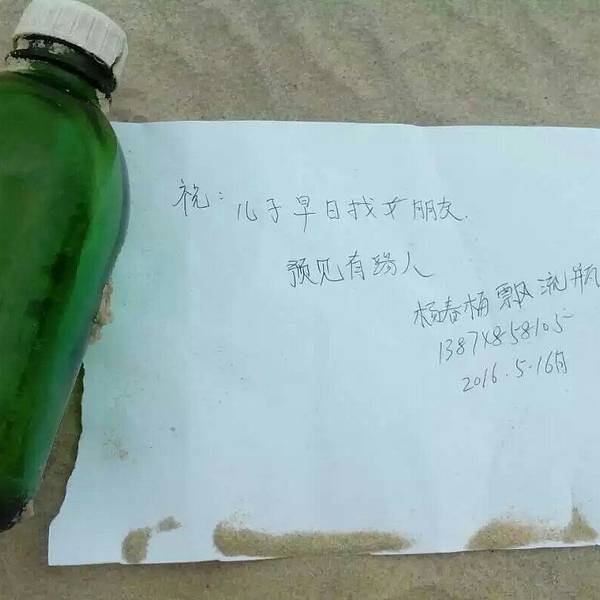 祝：儿子早日找女朋友.
预见有缘人
杨春梅飘流瓶
1387X858105
2016.5.16月